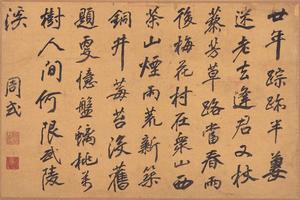 廿年踪跡半萋
迷老去逢君又杖
藜芳草路當春雨
後梅花村在衆山西
茶山煙雨荒新築
銅井莓苔沒舊
題更憶盤螭桃萬
樹人間何限武陵
溪